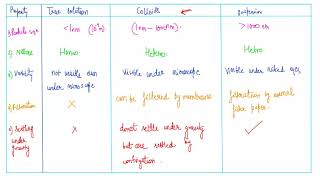 Property True solution Colloids Suspension
1) Particle size <1nm (10⁻⁹m) (1nm - 1000nm) >1000nm
2) Nature Homo. Hetero. Hetro
3) Visibility not visible even under microscopic visible under microscopic visible under naked eyes.
4) Filtration × can be filtered by membrane filteration by normal filter paper.
5) Settling under gravity × donot settle under gravity but are settled by centrifugation. ✓